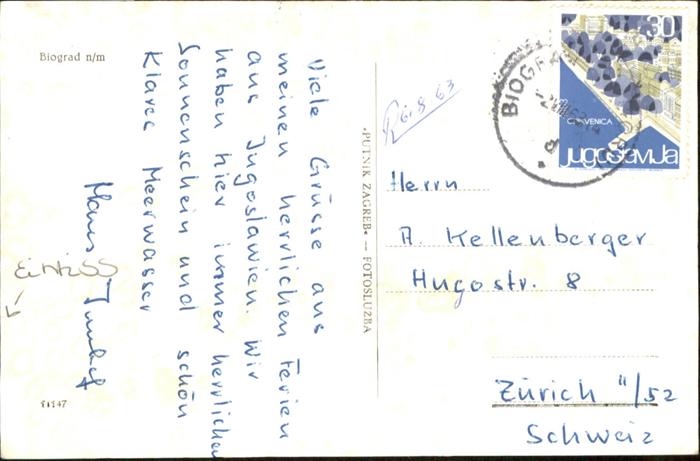 Biograd n/m
Viele Grüsse aus
meinen herrlichen Ferien
aus Jugoslawien. Wir
haben hier immer herrlichen
Sonnenschein und schön
klares Meerwasser
Hans
14147
•PUTNIK ZAGREB• — FOTOSLUŽBA
6.8.63
30
CRIKVENICA
jugoslavija
BIOGRAD
Herrn
A. Kellenberger
Hugostr. 8
Zürich 11/52
Schweiz